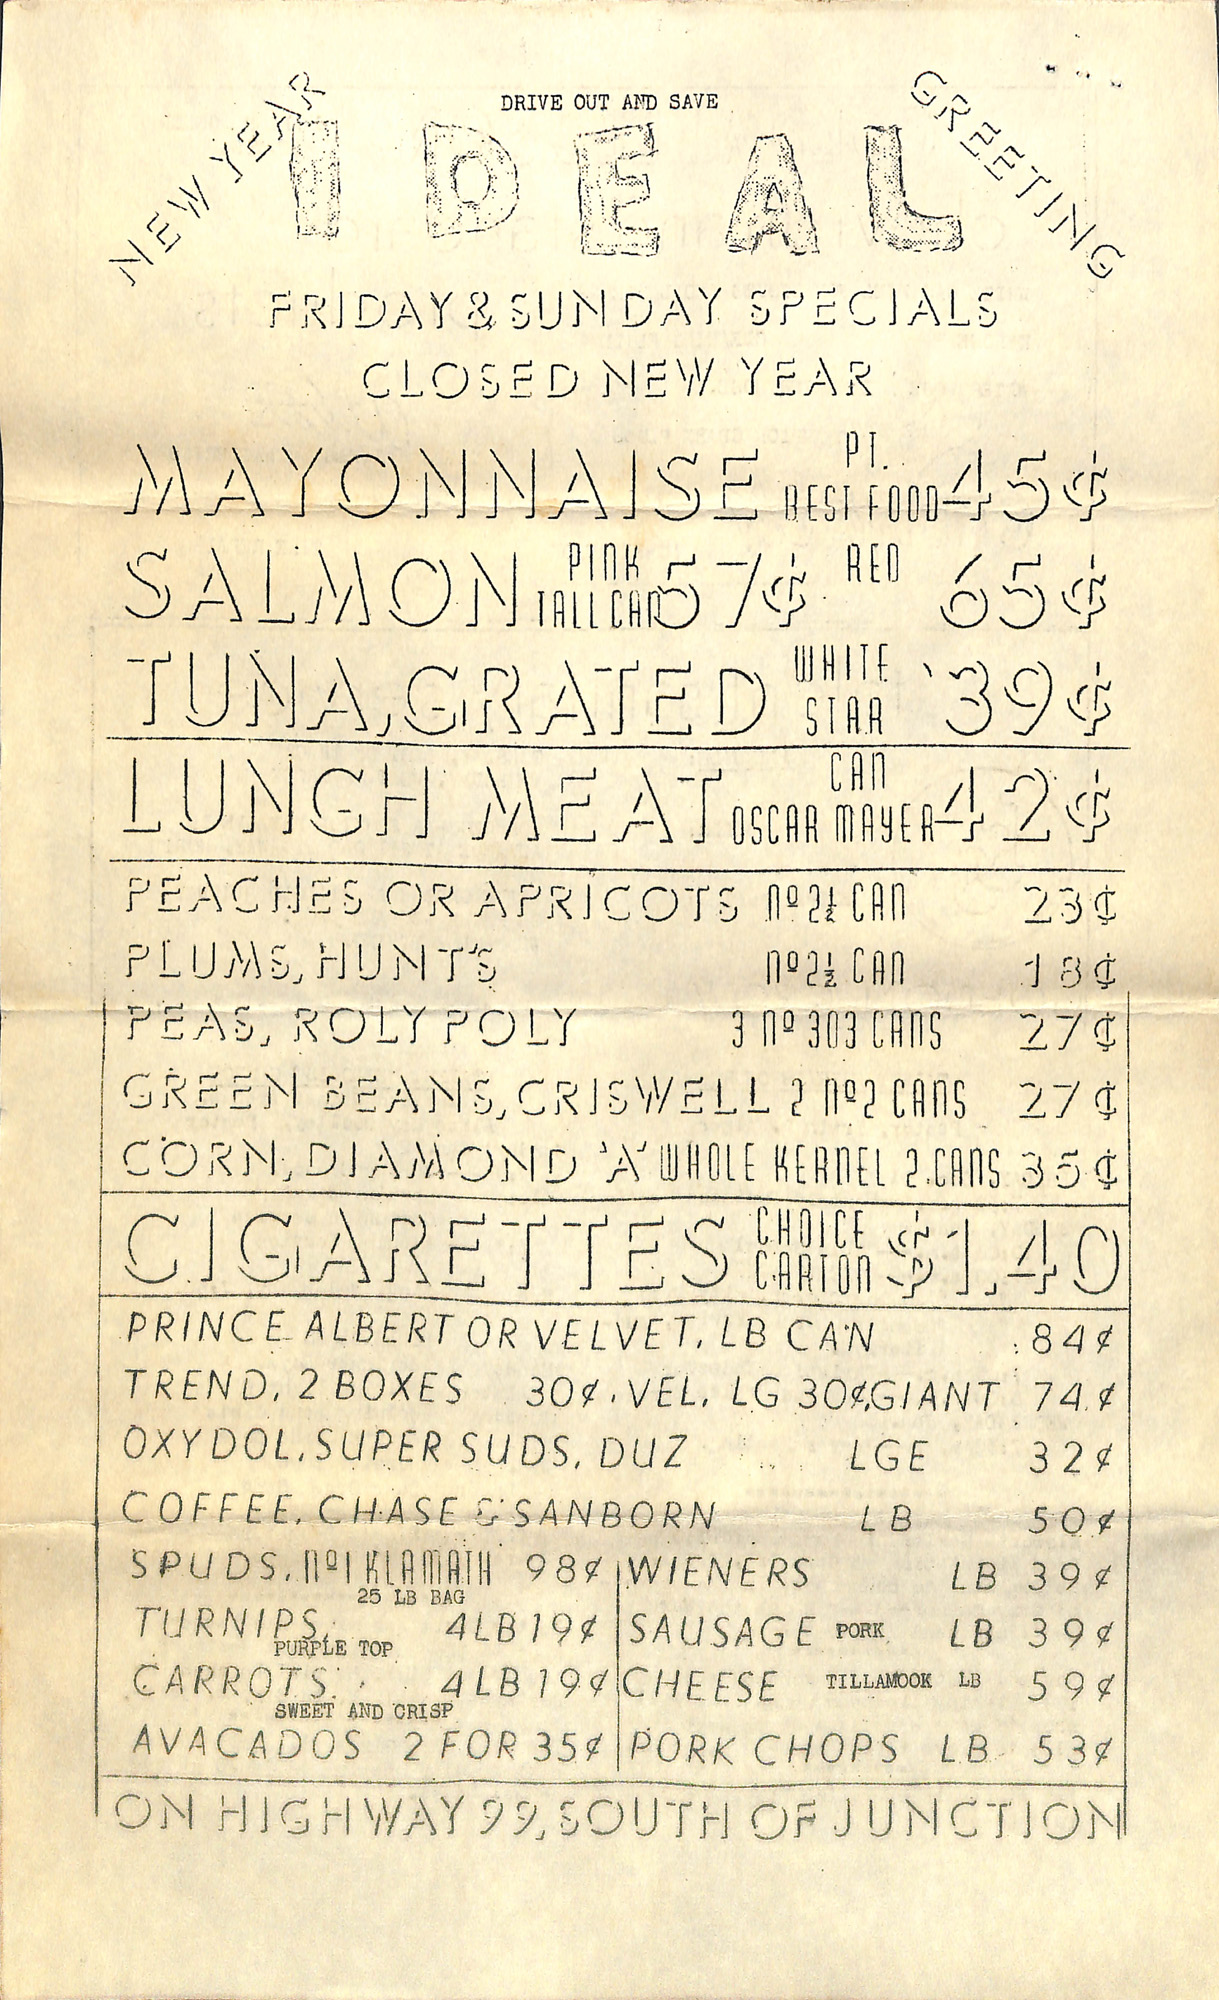 DRIVE OUT AND SAVE
NEW YEAR GREETING
IDEAL
FRIDAY & SUNDAY SPECIALS
CLOSED NEW YEAR
MAYONNAISE PT. BEST FOOD 45¢
SALMON PINK TALL CAN 57¢ RED 65¢
TUNA, GRATED WHITE STAR 39¢
LUNCH MEAT CAN OSCAR MAYER 42¢
PEACHES OR APRICOTS Nº 2½ CAN 23¢
PLUMS, HUNT'S Nº 2½ CAN 18¢
PEAS, ROLY POLY 3 Nº 303 CANS 27¢
GREEN BEANS, CRISWELL 2 Nº 2 CANS 27¢
CORN, DIAMOND 'A' WHOLE KERNEL 2 CANS 35¢
CIGARETTES CHOICE CARTON $1.40
PRINCE ALBERT OR VELVET, LB CAN 84¢
TREND, 2 BOXES 30¢, VEL, LG 30¢, GIANT 74¢
OXYDOL, SUPER SUDS, DUZ LGE 32¢
COFFEE, CHASE & SANBORN LB 50¢
SPUDS, Nº1 KLAMATH 98¢
25 LB BAG
TURNIPS, 4 LB 19¢
PURPLE TOP
CARROTS 4 LB 19¢
SWEET AND CRISP
AVACADOS 2 FOR 35¢
WIENERS LB 39¢
SAUSAGE PORK LB 39¢
CHEESE TILLAMOOK LB 59¢
PORK CHOPS LB 53¢
ON HIGHWAY 99, SOUTH OF JUNCTION